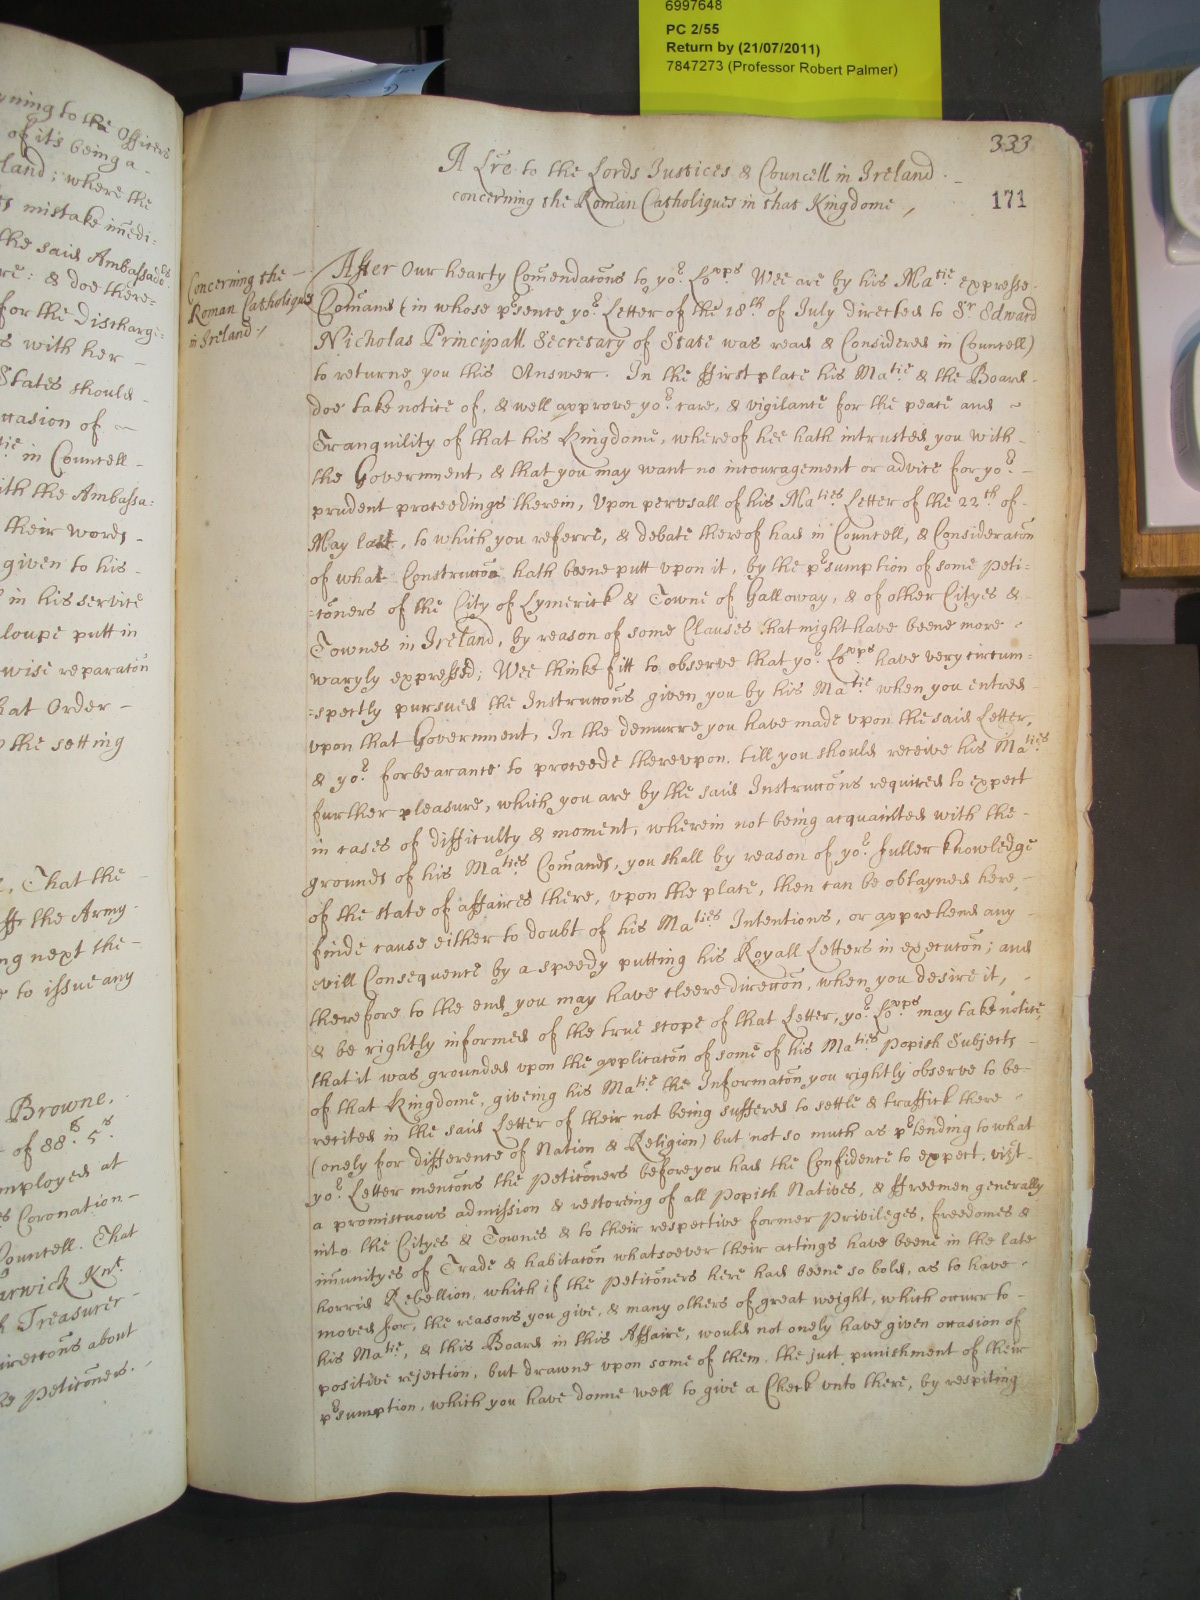 6997648
PC 2/55
Return by (21/07/2011)
7847273 (Professor Robert Palmer)
yning to the Officers
of it's being a -
land; where the
s mistake im̄edi:
the said Ambassadrs
re: & doe there=
for the Discharge:
s with her -
States should -
ccasion of -
tie in Councell -
ith the Ambassa:
their words -
given to his -
in his service
loupe putt in
wise reparac̄on
hat Order -
o the setting
, That the -
ffe the Army -
ng next the -
e to issue any
Browne.
of 88£ 5s
mployed at
s Coronation -
Councell. That
arwick Knt.
h Treasurer -
irecc̄ons about
he Petic̄oners.
333
171
A Lr̄e to the Lords Justices & Councell in Ireland. -
concerning the Roman Catholiques in that Kingdome,
Concerning the -
Roman Catholiques
in Ireland./
After Our hearty Com̄endac̄ons to yor. Lopps Wee are by his Matie expresse -
Com̄and (in whose p̄sence yor. Letter of the 18th of July directed to Sr Edward
Nicholas Principall Secretary of State was read & Considered in Councell)
to returne you this Answer. In the ffirst place his Matie & the Board -
doe take notice of, & well approve yor. care, & vigilance for the peace and ~
Tranquility of that his Kingdome, whereof hee hath intrusted you with -
the Government, & that you may want no incouragement or advice for yor. -
prudent proceedings therein, Vpon pervsall of his Maties Letter of the 22th of -
May last, to which you referre, & debate thereof had in Councell, & Considerac̄on
of what Construcc̄on hath beene putt vpon it, by the p̄sumption of some Peti-
=c̄oners of the City of Lymerick & Towne of Galloway, & of other Cityes & -
Townes in Ireland, by reason of some Clauses that might have beene more -
waryly expressed; Wee thinke fitt to observe that yor. Lopps have very circum=
=spectly pursued the Instrucc̄ons given you by his Matie when you entred -
vpon that Government, In the demurre you have made vpon the said Letter,
& yor. forbearance to proceede therevpon. till you should receive his Maties
further pleasure, which you are by the said Instrucc̄ons required to expect
in cases of difficulty & moment, wherein not being acquainted with the -
grounds of his Maties Com̄ands, you shall by reason of yor. fuller knowledge
of the state of affaires there, vpon the place, then can be obtayned here, -
finde cause either to doubt of his Maties Intentions, or apprehend any -
evill Consequence by a speedy putting his Royall Letters in execuc̄on; and
therefore to the end you may have cleere direcc̄on, when you desire it, -
& be rightly informed of the true scope of that Letter, yor. Lopps may take notice,
that it was grounded vpon the applicac̄on of some of his Maties Popish Subjects -
of that Kingdome, giveing his Matie the Informac̄on you rightly observe to be
recited in the said Letter of their not being suffered to settle & traffick there -
(onely for difference of Nation & Religion) but not so much as p̄tending to what
yor. Letter menc̄ons the Petic̄oners before you had the Confidence to expect, vizt -
a promiscuous admission & restoreing of all Popish Natives, & ffreemen generally
into the Cityes & Townes & to their respective former Privileges, freedomes &
im̄unityes of Trade & habitac̄on whatsoever their actings have beene in the late
horrid Rebellion, which if the Petic̄oners here had beene so bold, as to have -
moved for, the reasons you give, & many others of great weight, which occurr to -
his Matie, & this Board in this Affaire, would not onely have given occasion of
positive rejection, but drawne vpon some of them, the just punishment of their
p̄sumption, which you have donne well to give a Check vnto there, by respiting